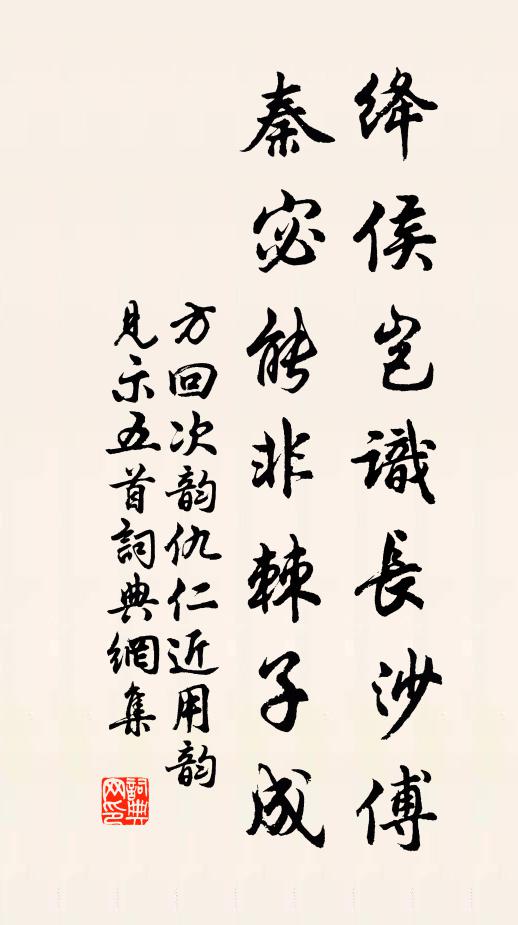 绛侯岂識長沙傅
秦宓能非棘子成
方回次韵仇仁近用韵
見示五首詞典網集
詞典网印